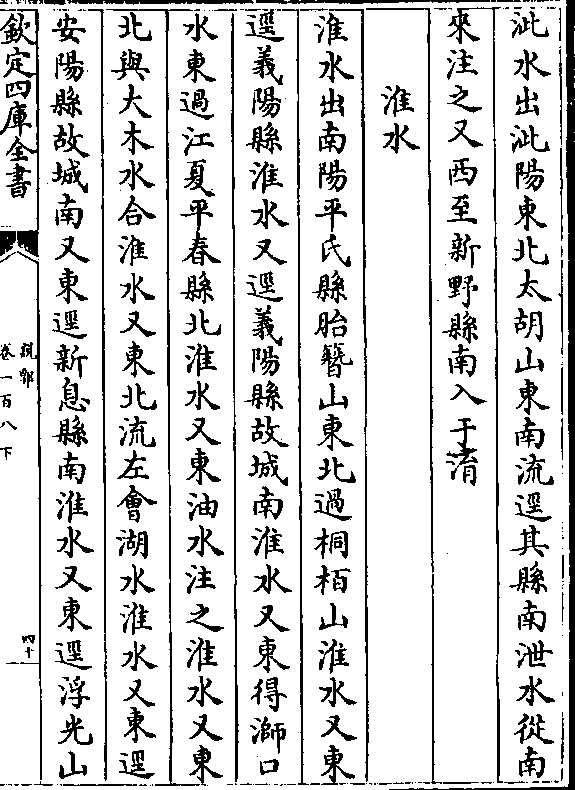 沘水出沘陽東北太胡山東南流逕其縣南泄水從南
來注之又西至新野縣南入于淯
淮水
淮水出南陽平氏縣胎簪山東北過桐栢山淮水又東
逕義陽縣淮水又逕義陽縣故城南淮水又東得溮口
水東過江夏平春縣北淮水又東油水注之淮水又東
北與大木水合淮水又東北流左會湖水淮水又東逕
安陽縣故城南又東逕新息縣南淮水又東逕浮光山
欽定四庫全書
說郛
卷一百八下
四十